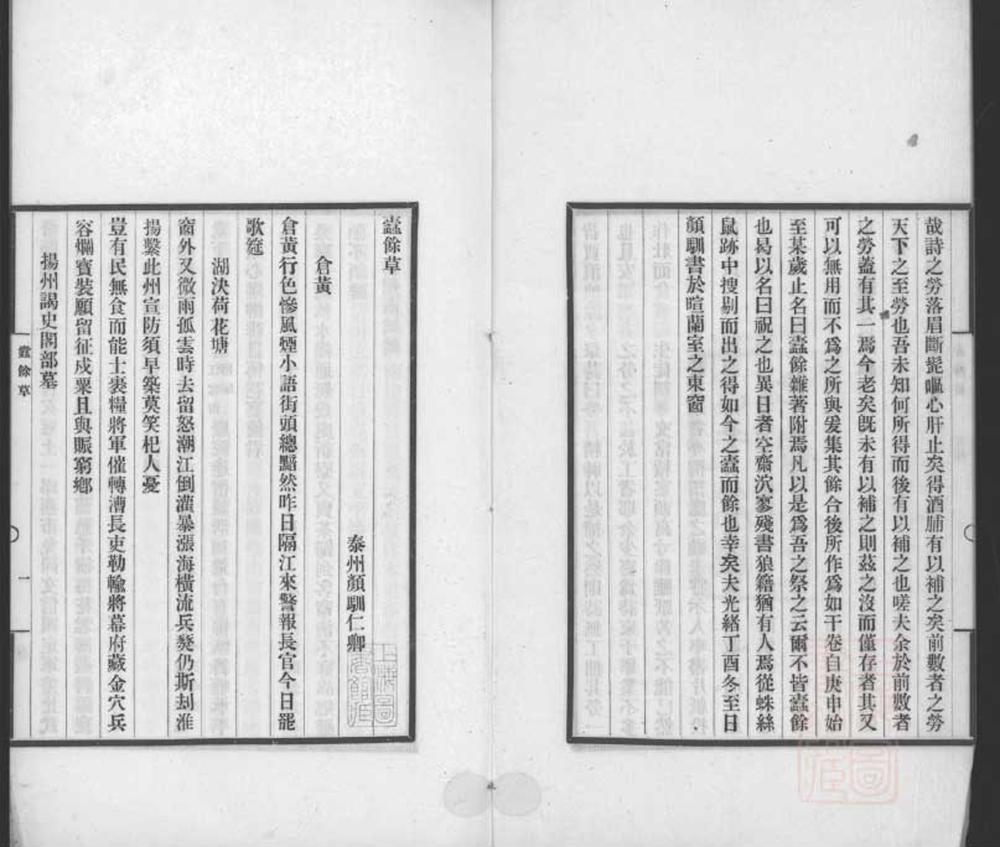 哉詩之勞落眉斷髭嘔心肝止矣得酒脯有以補之矣前數者之勞
天下之至勞也吾未知何所得而後有以補之也嗟夫余於前數者
之勞蓋有其一焉今老矣旣未有以補之則茲之沒而僅存者其又
可以無用而不爲之所與爰集其餘合後所作爲如干卷自庚申始
至某歲止名曰蠹餘雜著附焉凡以是爲吾之祭之云爾不皆蠹餘
也曷以名曰祝之也異日者空齋泬寥殘書狼籍猶有人焉從蛛絲
鼠跡中搜剔而出之得如今之蠹而餘也幸矣夫光緒丁酉冬至日
顏馴書於暄蘭室之東窗
蠹餘草
泰州顏馴仁卿
倉黃
倉黃行色慘風煙小語街頭總黯然昨日隔江來警報長官今日罷
歌筵
湖決荷花塘
窗外又微雨孤雲時去留怒潮江倒灌暴漲海橫流兵燹仍斯刦淮
揚繫此州宣防須早築莫笑杞人憂
豈有民無食而能士裹糧將軍催轉漕長吏勒輸將幕府藏金穴兵
容爛寶裝願留征戍粟且與賑窮鄉
揚州謁史閣部墓
蠹餘草
一